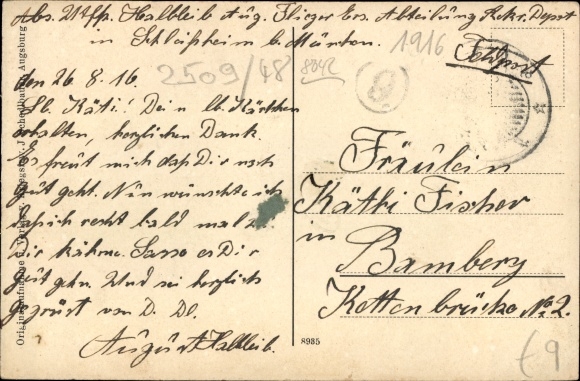 Abs. Halbleib Aug. Flieger Ers. Abteilung Rekr. Depot
in Schleißheim b. München.
1916
Feldpost
2509/48
den 26.8.16.
Lb. Käti! Dein lb. Kärtchen
erhalten, herzlichen Dank.
Es freut mich daß Dir noch
gut geht. Nun wünschte ich
daß ich recht bald mal z
Dir kähme. Lasse es Dir
gut gehn. Und sei herzlich
gegrüst von D.
August Halbleib.
Fräulein
Käthi Fischer
in
Bamberg
Kettenbrücke No 2.
8935
€9